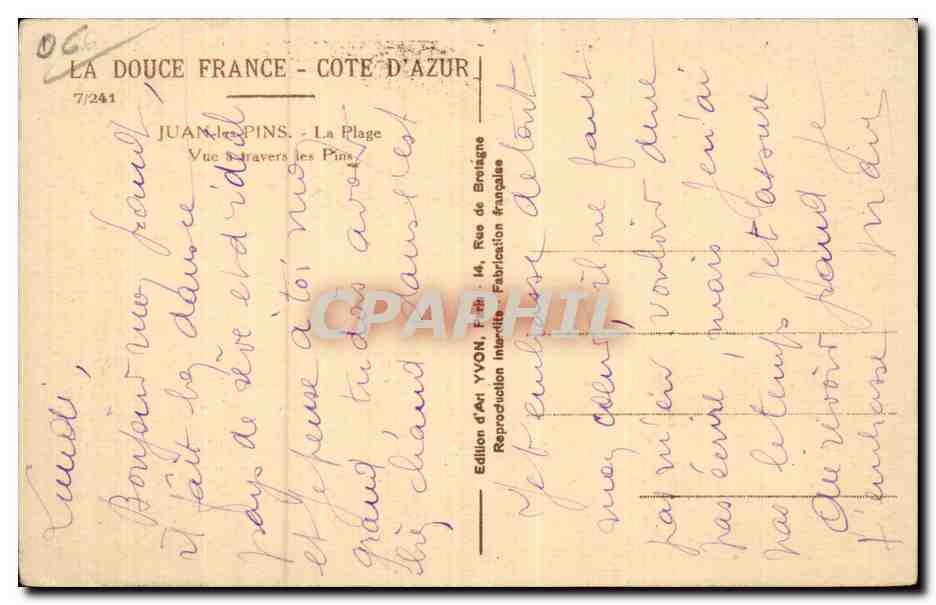 06
LA DOUCE FRANCE - COTE D'AZUR
7/241
JUAN-les-PINS. - La Plage
Vue à travers les Pins
Edition d'Art YVON, Paris - 14, Rue de Bretagne
Reproduction interdite. Fabrication française
CPAPHIL
Lundi,
Bonjour mon grand,
Il fait la dans le
pays de rêve et d'idéal
et je pense à toi mon
grand tu dois avoir
très chaud Paris est
Je t'embrasse de tout
mon coeur, il ne faut
pas m'en vouloir de ne
pas écrire, mais je n'ai
pas le temps je t'assure
Au revoir grand je
t'embrasse